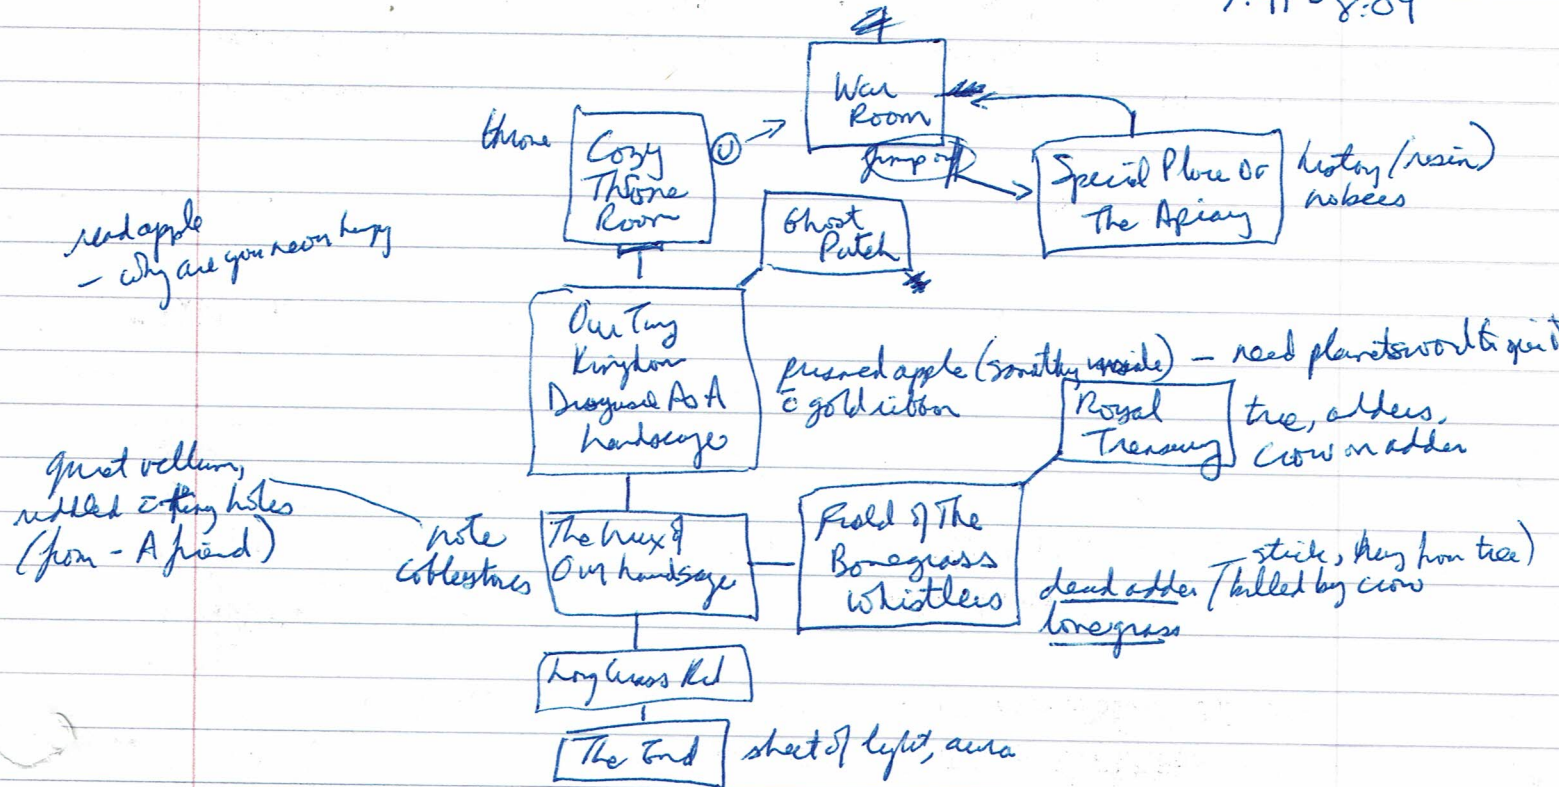 8:09
War
Room
throne
Cozy
Throne
Room
U
jump off
Special Place Of
The Apiary
history (resin)
no bees
Ghost
Patch
read apple
- why are you never hungry
Our Tiny
Kingdom
Disguised As A
Landscape
apple (something inside) - need
c̄ gold ribbon
Royal
Treasury
tree, adders,
crow on adder
quiet vellum,
riddled c̄ tiny holes
(from - A friend)
note
coblestones
The Crux of
Our Landscape
Field of The
Bonegrass
Whistlers
stick, hung from tree)
dead adder (killed by crow
bonegrass
Long Grass Rd
The End
sheet of light, aura